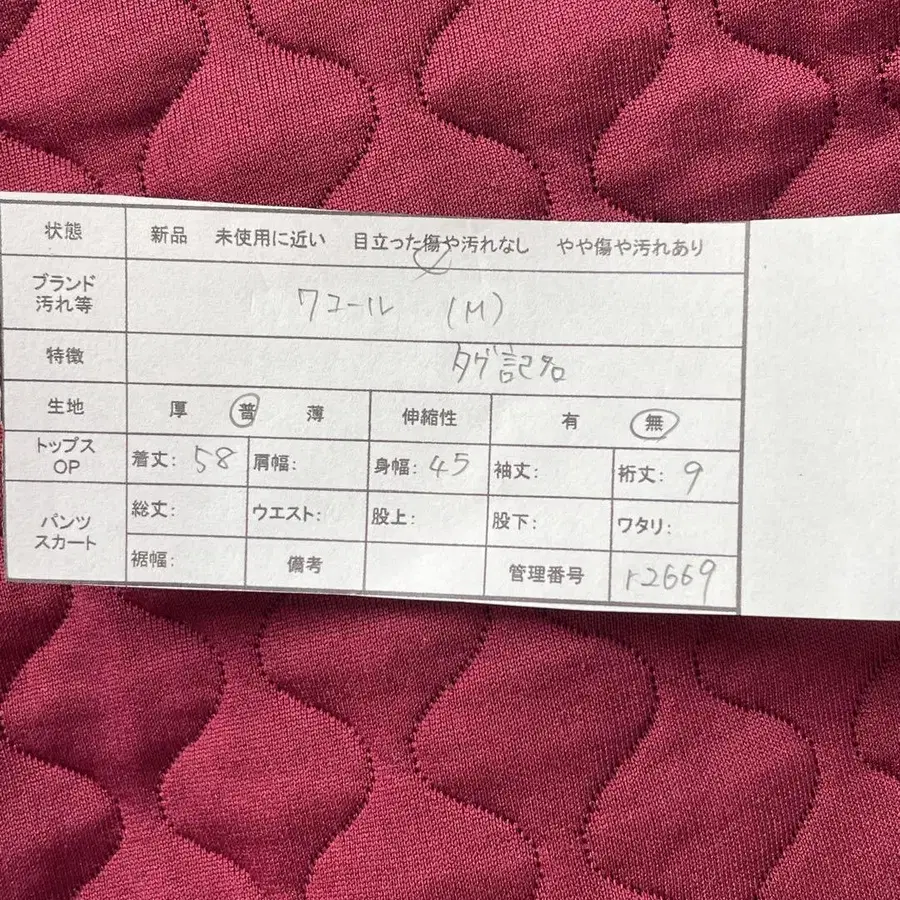 状態 新品 未使用に近い 目立った傷や汚れなし やや傷や汚れあり
ブランド
汚れ等 ワコール (M)
特徴 タグ記名
生地 厚 普 薄 伸縮性 有 無
トップス
OP 着丈: 58 肩幅: 身幅: 45 袖丈: 裄丈: 9
パンツ
スカート 総丈: ウエスト: 股上: 股下: ワタリ:
裾幅: 備考 管理番号 r2669